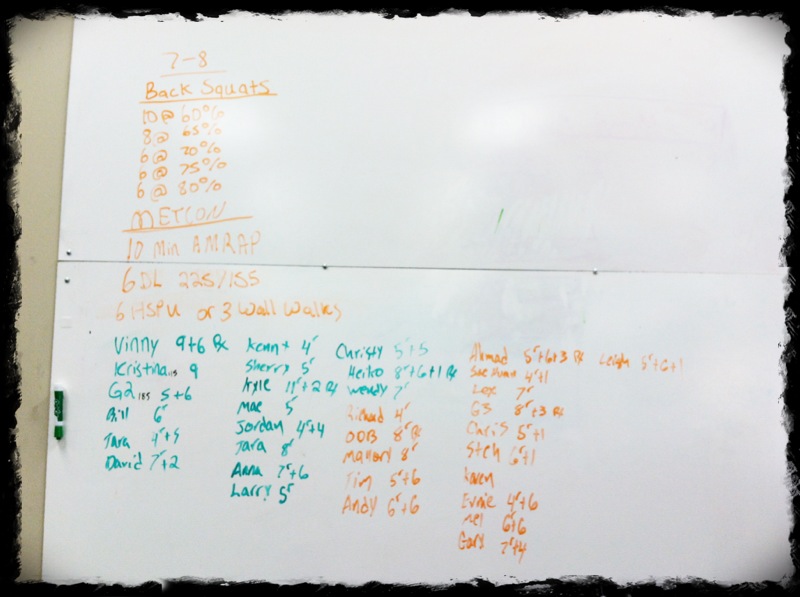 7-8
Back Squats
10 @ 60%
8 @ 65%
6 @ 70%
6 @ 75%
6 @ 80%
METCON
10 Min AMRAP
6 DL 225/155
6 HSPU or 3 Wall Walks
Vinny 9+6 Rx
Kristina 115 9
G2 185 5+6
Bill 6r
Tara 4r+5
David 7r+2
Kenn+ 4r
Sherry 5r
Kyle 11r+2 Rx
Mae 5r
Jordan 4r+4
Jara 8r
Anna 7r+6
Larry 5r
Christy 5r+5
Heiko 8r+6+1 Rx
Wendy 7r
Richard 4r
OOB 8r Rx
Mallory 8r
Tim 5r+6
Andy 6r+6
Ahmad 5r+6+3 Rx
4r+1
Lex 7r
GS 8r+3 Rx
Chris 5r+1
Steh 6r+1
Ernie 4r+6
Mel 6r+6
Gary 7r+4
Leigh 5r+6+1